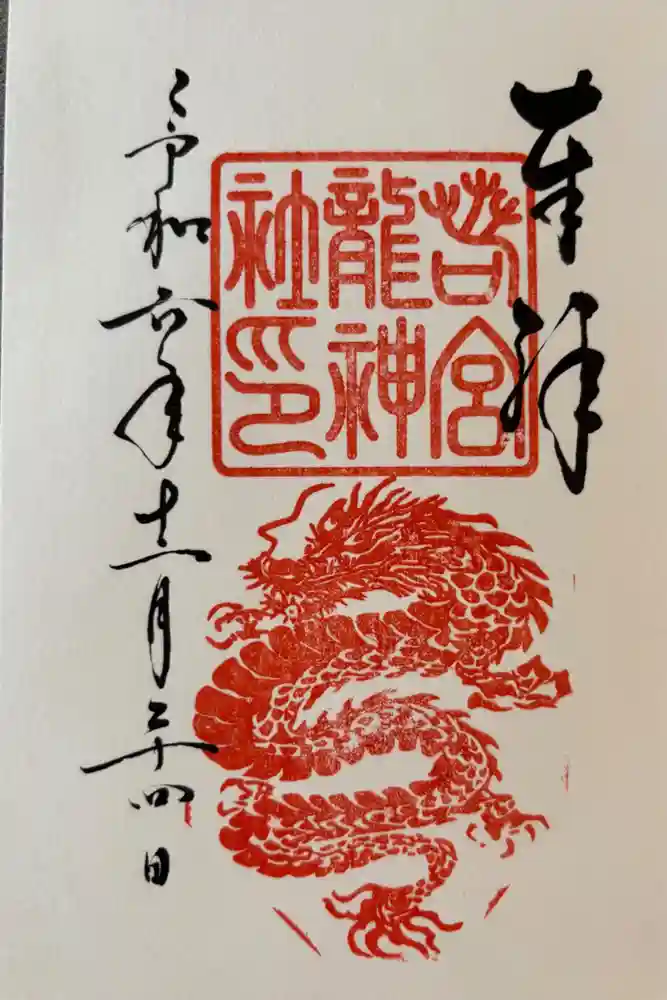 奉拝
若宮
龍神
社印
令和六年十二月二十四日